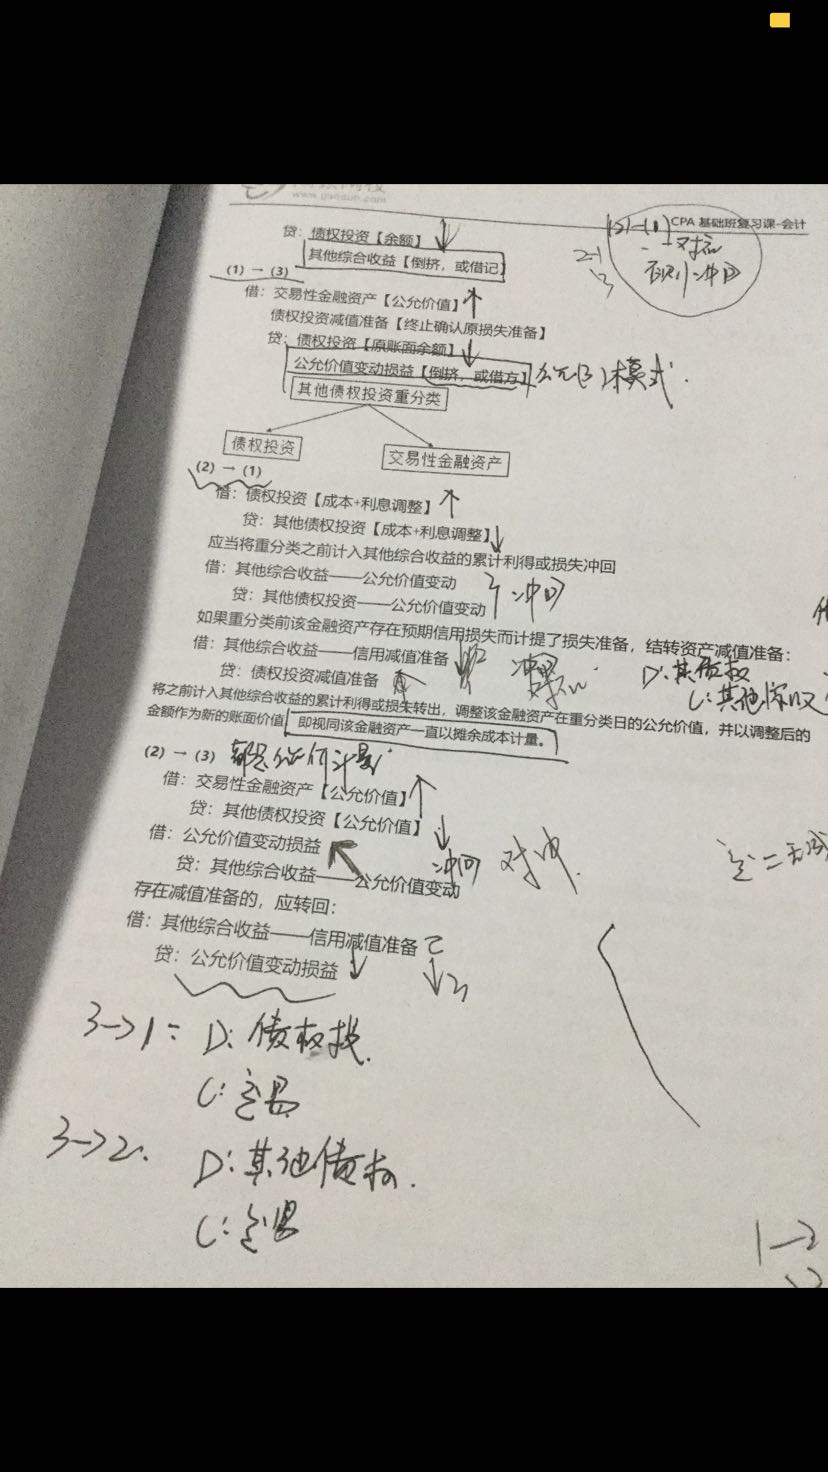 CPA 基础班复习课-会计
(2)→(1)
2-1
贷：债权投资【余额】
其他综合收益【倒挤，或借记】
(1)→(3)
借：交易性金融资产【公允价值】
债权投资减值准备【终止确认原损失准备】
贷：债权投资【原账面余额】
公允价值变动损益【倒挤，或借方】
模式.
其他债权投资重分类
债权投资
交易性金融资产
(2)→(1)
借：债权投资【成本+利息调整】
贷：其他债权投资【成本+利息调整】
应当将重分类之前计入其他综合收益的累计利得或损失冲回
借：其他综合收益——公允价值变动
冲回
贷：其他债权投资——公允价值变动
如果重分类前该金融资产存在预期信用损失而计提了损失准备，结转资产减值准备：
借：其他综合收益——信用减值准备
D: 其债权
贷：债权投资减值准备
C: 其他综收
将之前计入其他综合收益的累计利得或损失转出，调整该金融资产在重分类日的公允价值，并以调整后的
金额作为新的账面价值 即视同该金融资产一直以摊余成本计量。
(2)→(3)
借：交易性金融资产【公允价值】
贷：其他债权投资【公允价值】
借：公允价值变动损益
冲回 对冲.
贷：其他综合收益——公允价值变动
存在减值准备的，应转回：
借：其他综合收益——信用减值准备
贷：公允价值变动损益
3→1: D: 债权投.
C: 交易
3→2. D: 其他债权.
C: 交易
1→2